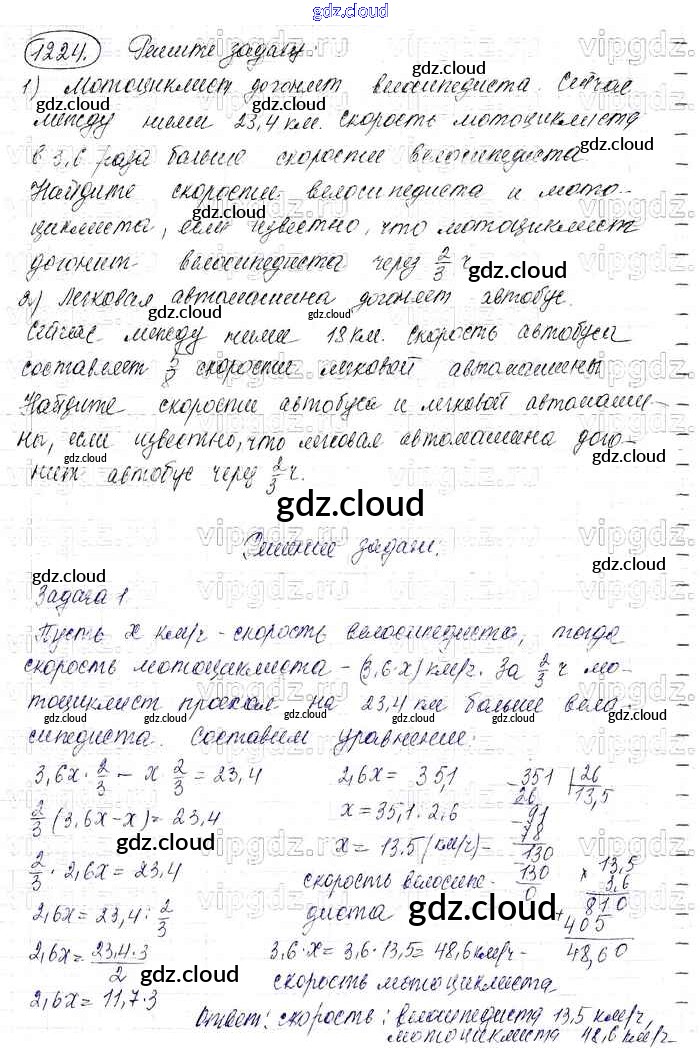 gdz.cloud
1224. Решите задачу:
1) Мотоциклист догоняет велосипедиста. Сейчас
между ними 23,4 км. Скорость мотоциклиста
в 3,6 раза больше скорости велосипедиста.
Найдите скорости велосипедиста и мото-
циклиста, если известно, что мотоциклист
догонит велосипедиста через 2/3 ч.
2) Легковая автомашина догоняет автобус.
Сейчас между ними 18 км. Скорость автобуса
составляет 5/8 скорости легковой автомашины
Найдите скорости автобуса и легковой автомаши-
ны, если известно, что легковая автомашина дого-
нит автобус через 2/3 ч.
gdz.cloud
Решение задач:
Задача 1
Пусть x км/ч - скорость велосипедиста, тогда
скорость мотоциклиста - (3,6·x) км/ч. За 2/3 ч мо-
тоциклист проехал на 23,4 км больше вело-
сипедиста. Составим уравнение:
3,6x · 2/3 - x · 2/3 = 23,4
2/3 (3,6x - x) = 23,4
2/3 · 2,6x = 23,4
2,6x = 23,4 : 2/3
2,6x = 23,4·3/2
2,6x = 11,7·3
2,6x = 35,1
x = 35,1 : 2,6
x = 13,5 (км/ч) -
скорость велосипе-
диста
3,6·x = 3,6·13,5 = 48,6 км/ч -
скорость мотоциклиста
-351 | 26
26 13,5
-91
78
-130
130
0
x 13,5
3,6
+ 810
405
48,60
Ответ: скорость: велосипедиста 13,5 км/ч,
мотоциклиста 48,6 км/ч